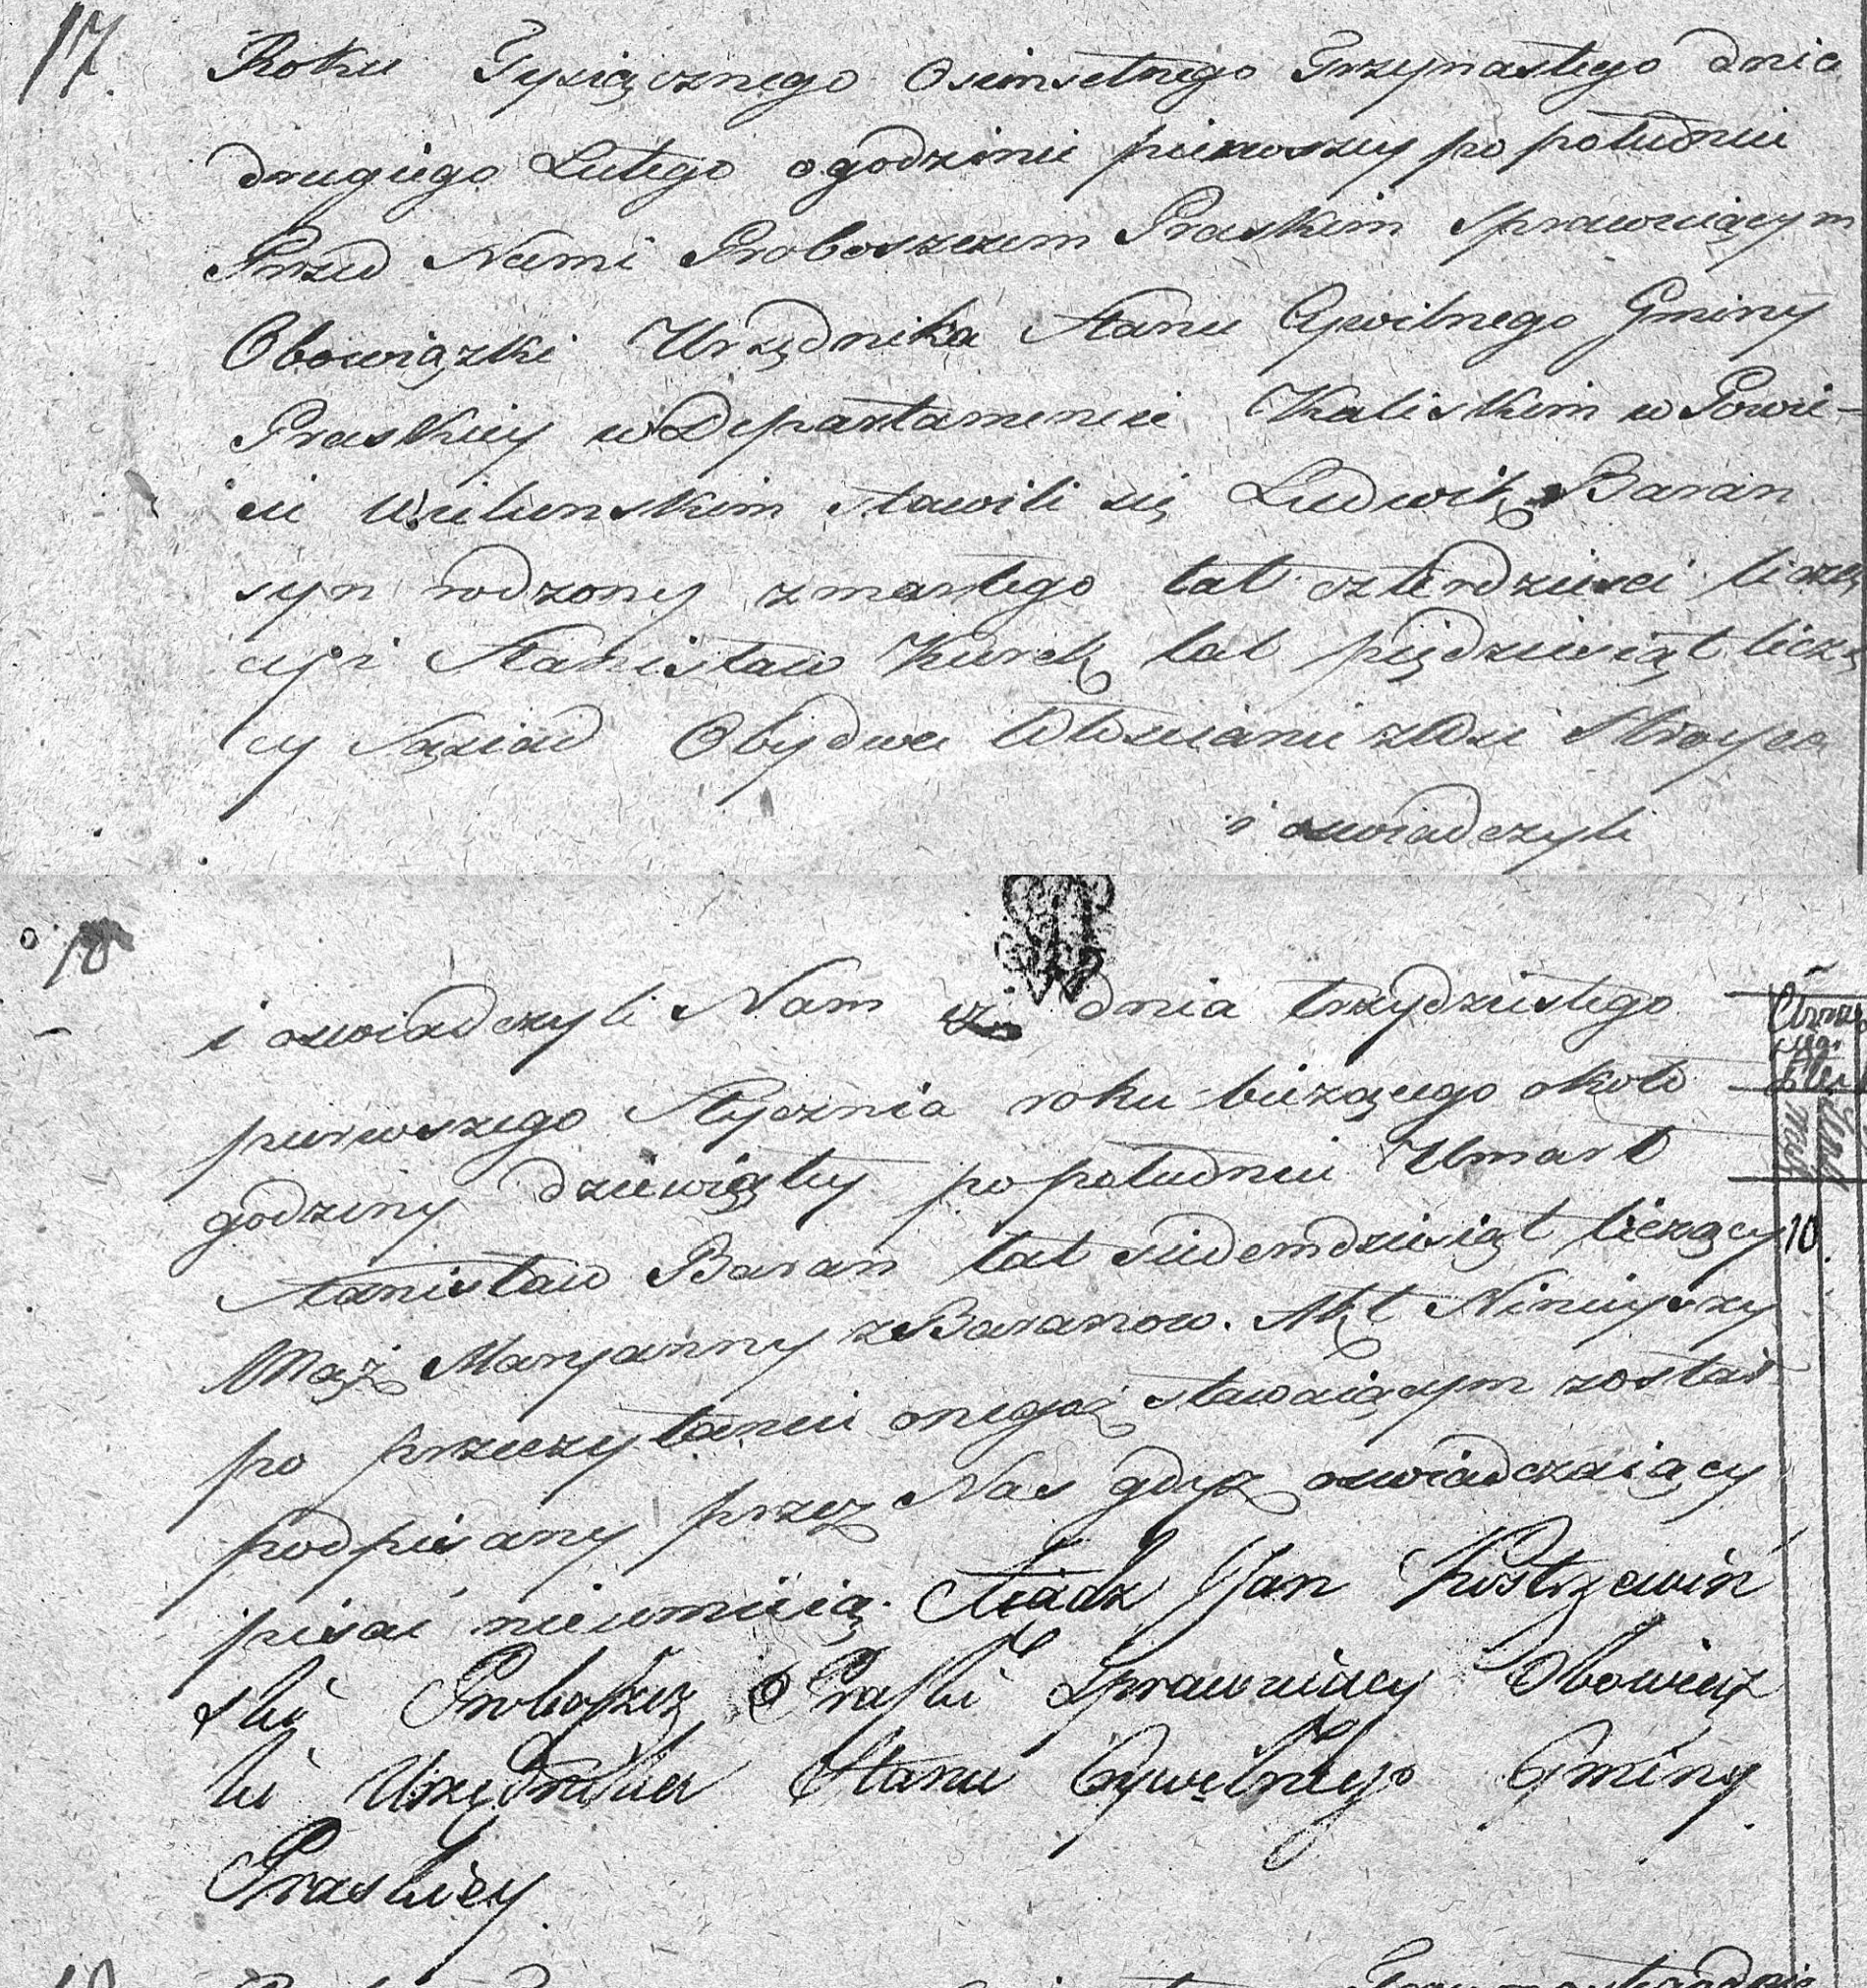 17. Roku Tysiącznego Osimsetnego Trzynastego dnia
drugiego Lutego o godzinie pierwszey po południu
Przed Nami Proboszczem Praskim sprawuiącym
Obowiązki Urzędnika Stanu Cywilnego Gminy
Praskiey w Departamencie Kaliskim w Powie-
cie Wielunskim stawili się Ludwik Baran
syn rodzony zmarłego lat czterdziesci liczą
cy i Stanisław Kurek lat piędziesiąt liczą
cy Sąsiad Obydwa Włoscianie z Wsi Stroyca
i oswiadczyli
18
i oswiadczyli Nam iż dnia trzydziestego
pierwszego Stycznia roku bieżącego około
godziny dziewiątey po południu Umarł
Stanisław Baran lat siedemdziesiąt liczący 10.
Mąż Maryanny z Baranow. Akt Ninieyszy
po przeczytaniu onegoż stawaiącym został
podpisany przez Nas gdyż oswiadczaiący
pisać nieumieią. Xiądz Jan Kostrzewiń
ski Proboszcz Praski Sprawuiący Obowiąz
ki Urzędnika Stanu Cywilnego Gminy
Praskiey